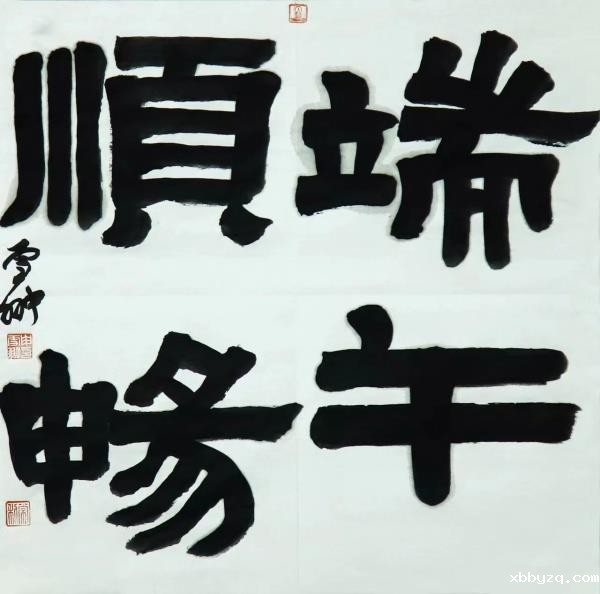 端午
順暢
雪
xbbyzq.com